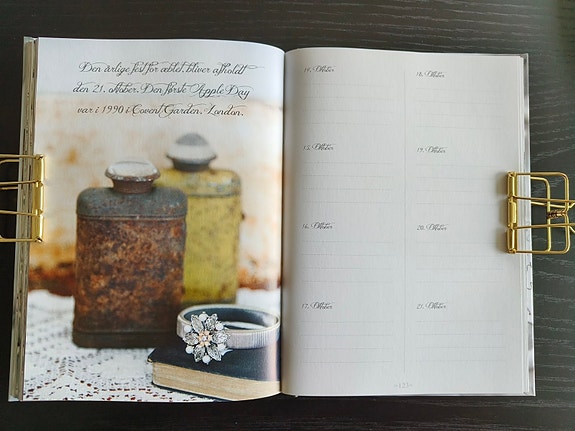 Den årlige fest for æblet, bliver afholdt
den 21. oktober. Den første Apple Day
var i 1990 i Covent Garden, London.
14. Oktober
15. Oktober
16. Oktober
17. Oktober
18. Oktober
19. Oktober
20. Oktober
21. Oktober